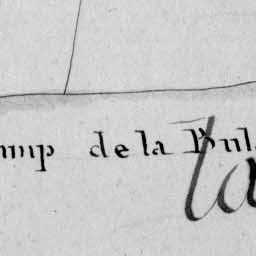 amp de la Bul
la